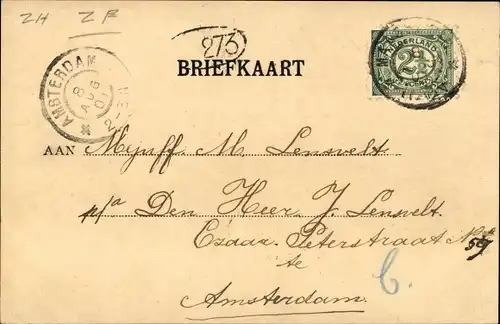 ZH ZF
273
BRIEFKAART
AMSTERDAM
8 AUG 01
NEDERLAND
2½
AAN Mejuff. M. Lensvelt
p/a Den Heer J. Lensvelt.
Czaar Peterstraat No
59
te
Amsterdam.
C.